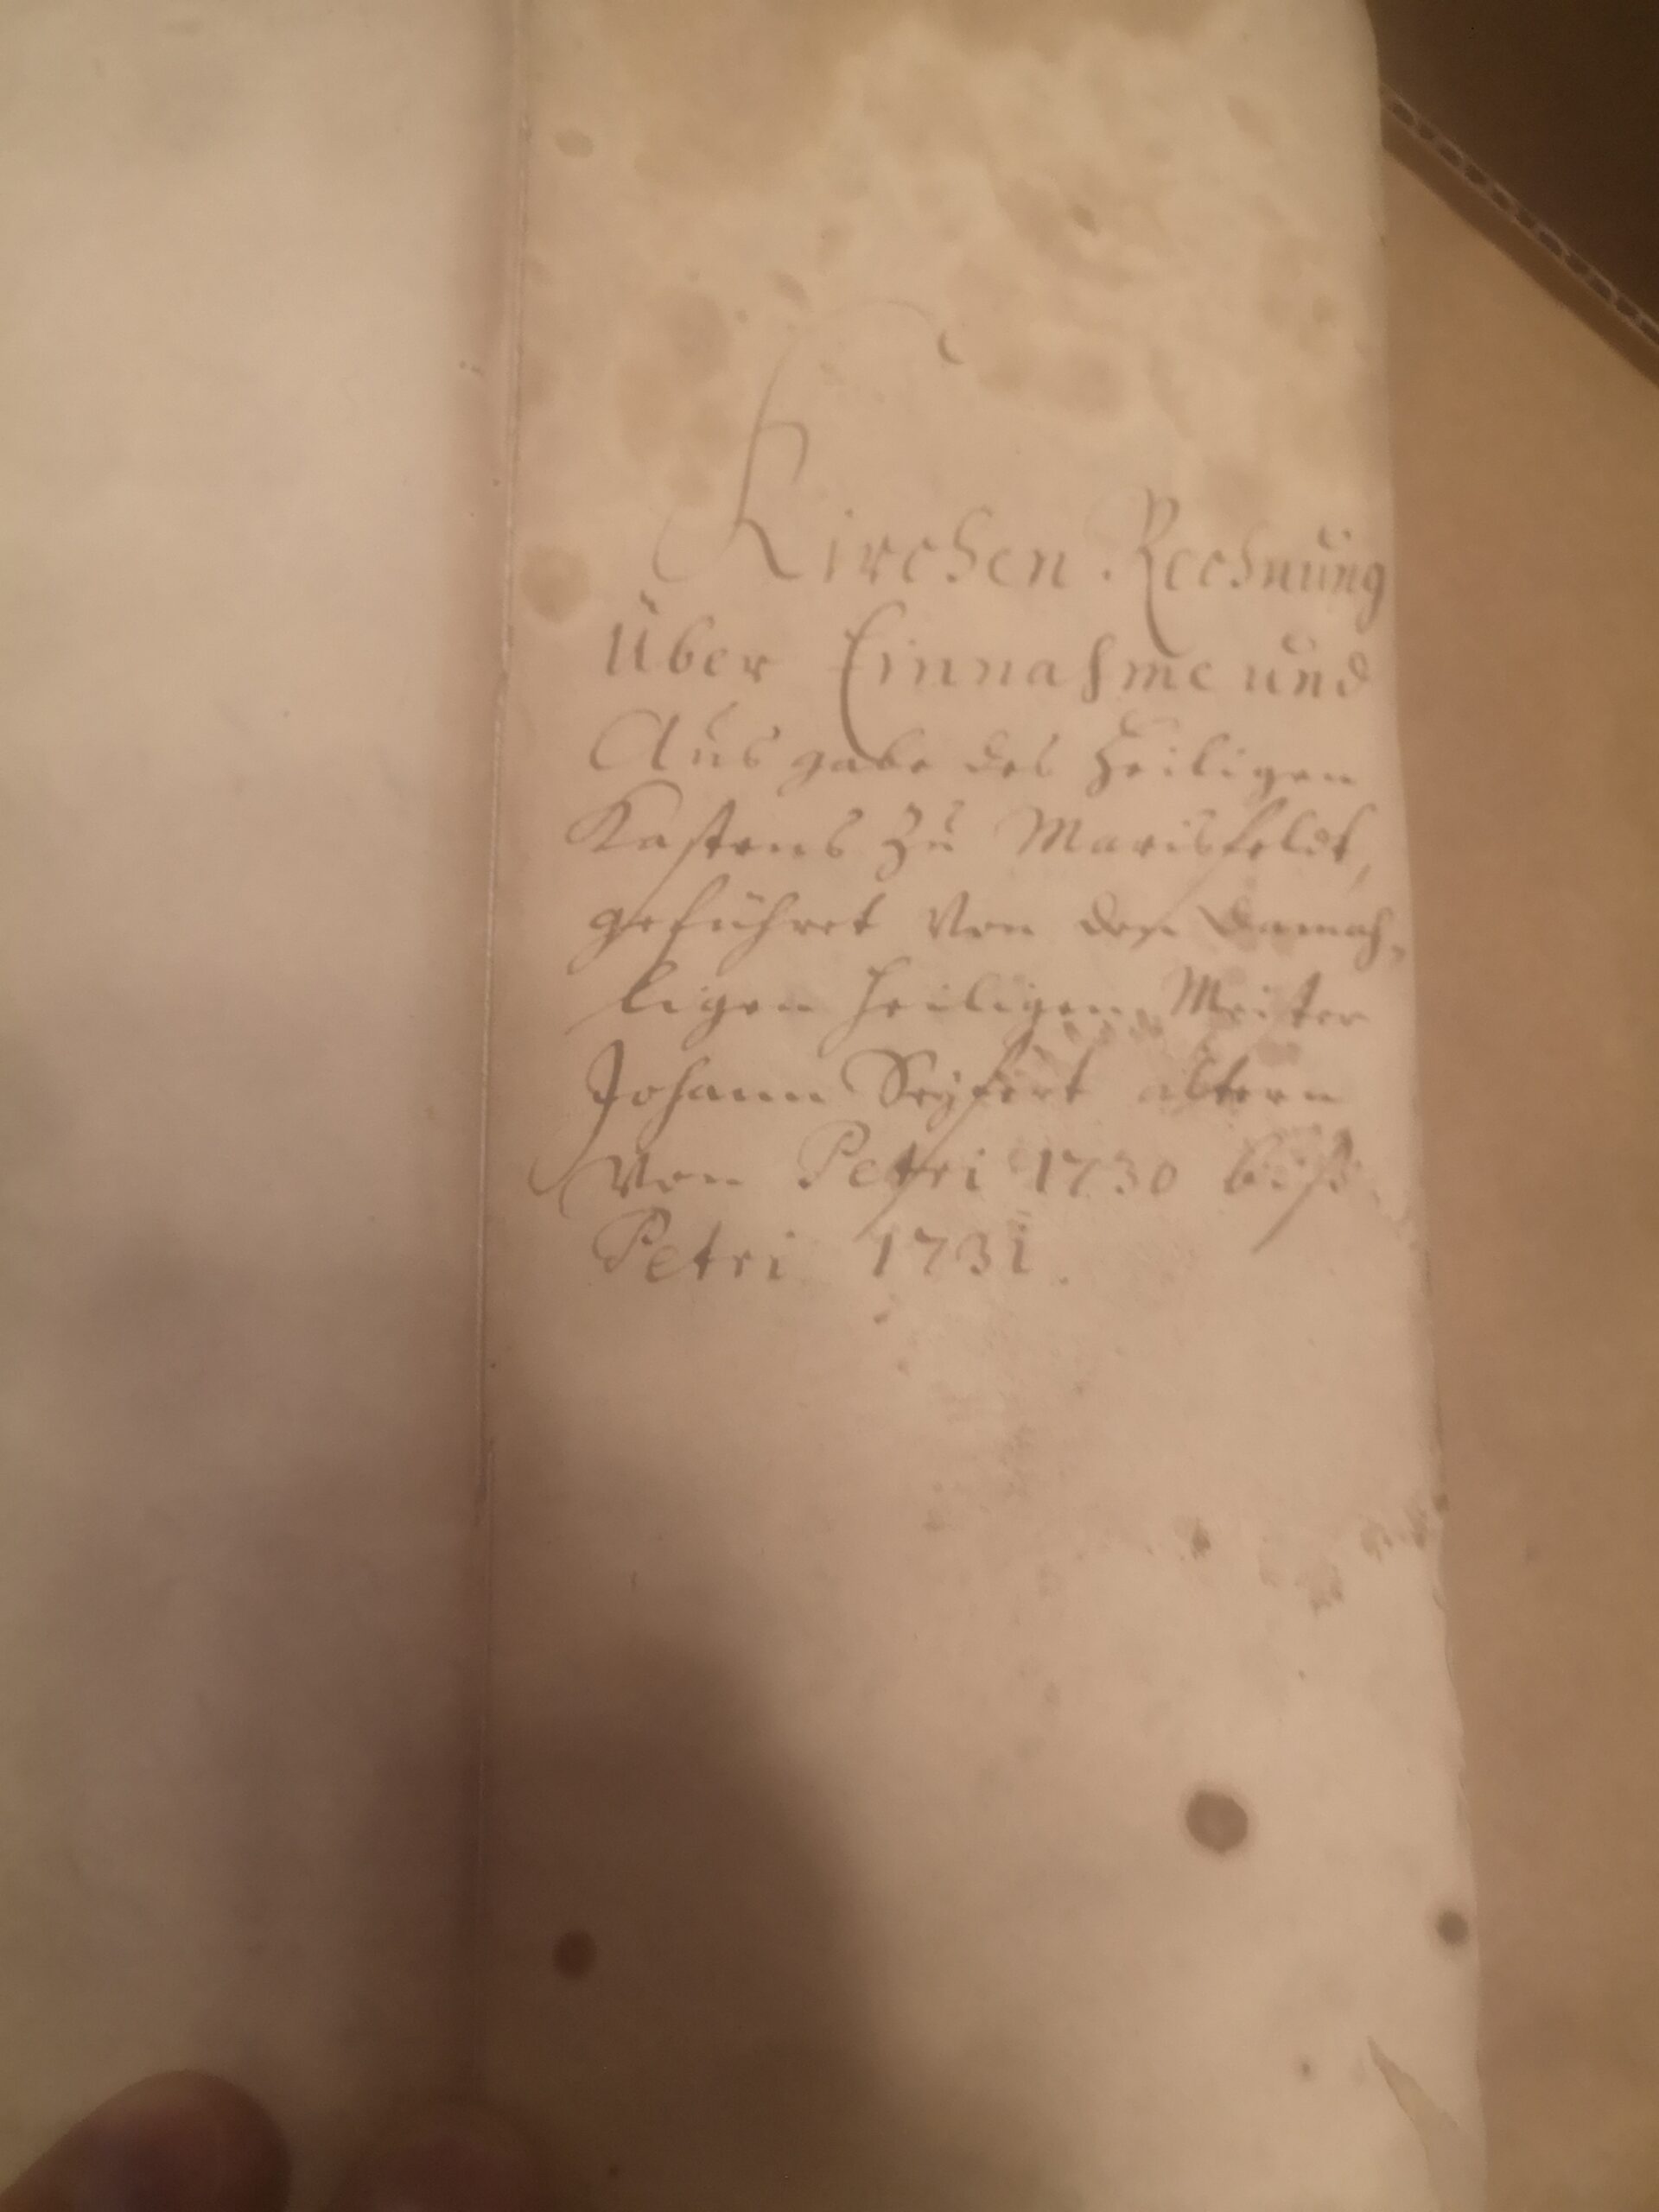 Kirchen Rechnung
Über Einnahme und
Ausgabe des Heiligen
Kastens zu Marisfeldt,
geführet von dem damah-
ligen Heiligen Meister
Johann Seyfert ältern
Von Petri 1730 biß
Petri 1731.